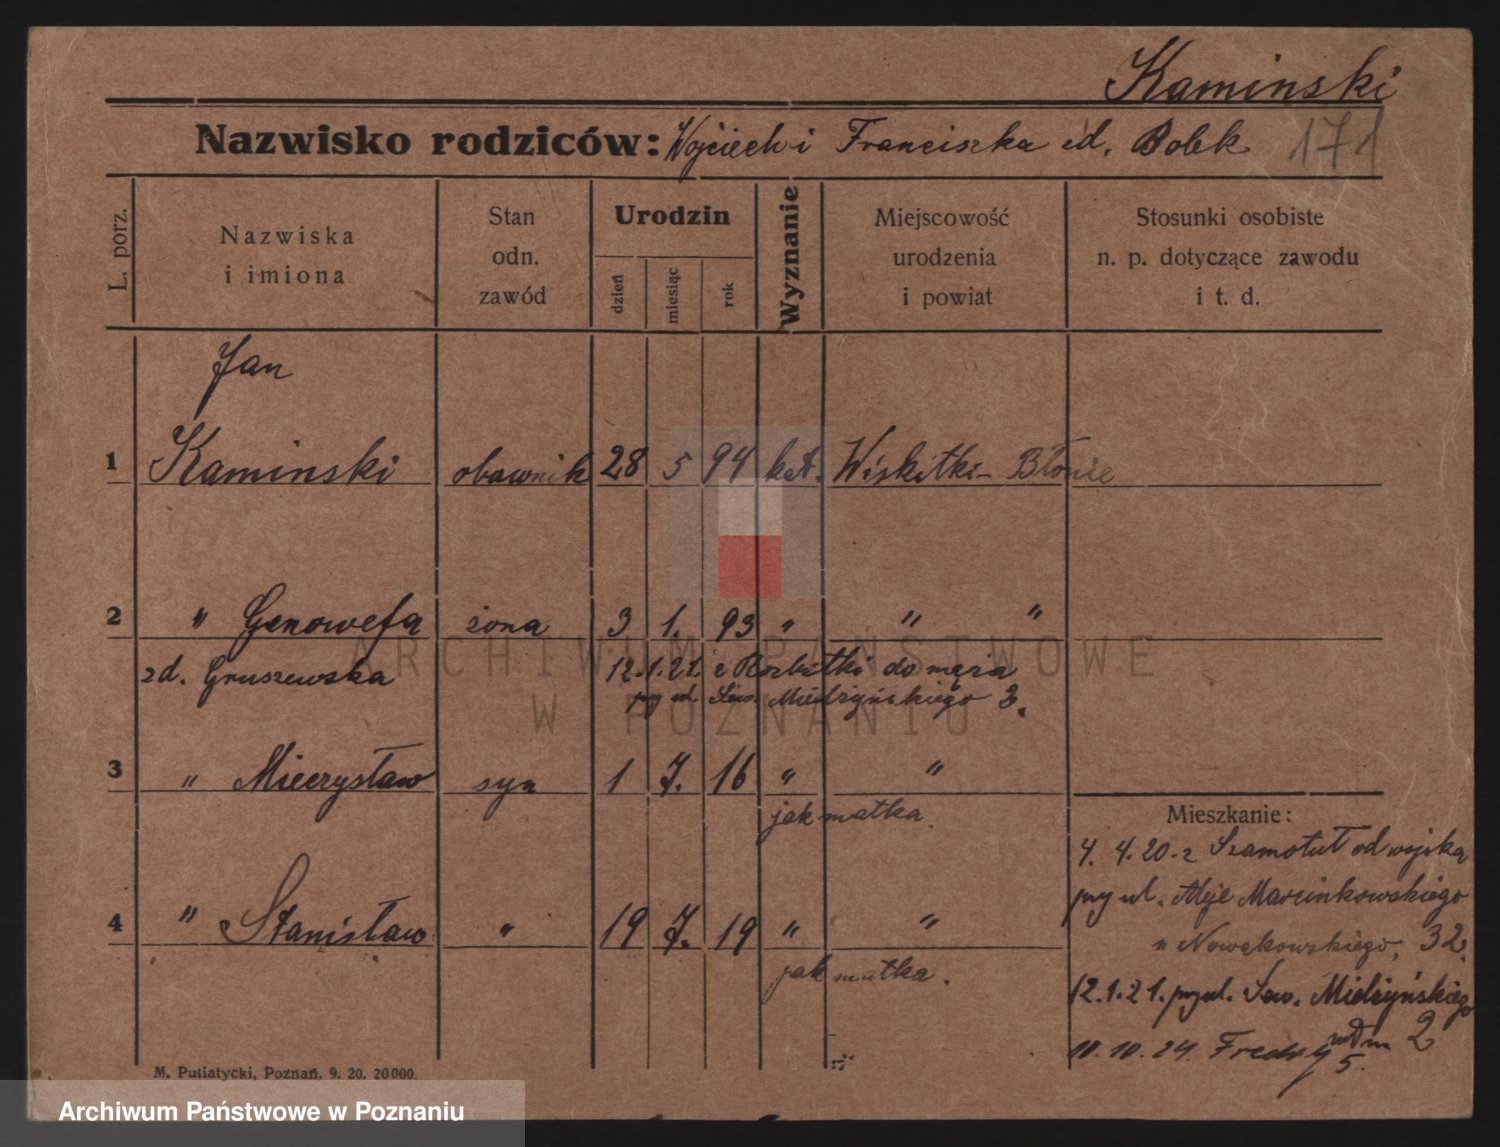 Kaminski
Nazwisko rodziców: Wojciech i Franciszka zd. Bolek 171
L. porz.
Nazwiska i imiona
Stan odn. zawód
Urodzin
dzień miesiąc rok
Wyznanie
Miejscowość urodzenia i powiat
Stosunki osobiste n. p. dotyczące zawodu i t. d.
Jan
1 Kaminski obawnik 28 5 94 kat. Wiskitki - Błonie
2 " Genowefa żona 3 1. 93 " " "
zd. Gruszewska 12.1.21. z Rozbitki do męża
przy ul. Sew. Mielżyńskiego 2.
3 " Mieczysław syn 1 7. 16 " "
jak matka.
Mieszkanie:
4. 4. 20. z Szamotuł od wojska
przy ul. Aleje Marcinkowskiego
4 " Stanisław " 19 7. 19 " "
u Nowakowskiego, 32.
jak matka.
12.1.21. przy ul. Sew. Mielżyńskiego
2
10. 24. Fredry 5.
M. Putiatycki, Poznań. 9. 20. 20000.
ARCHIWUM PAŃSTWOWE
W POZNANIU
Archiwum Państwowe w Poznaniu